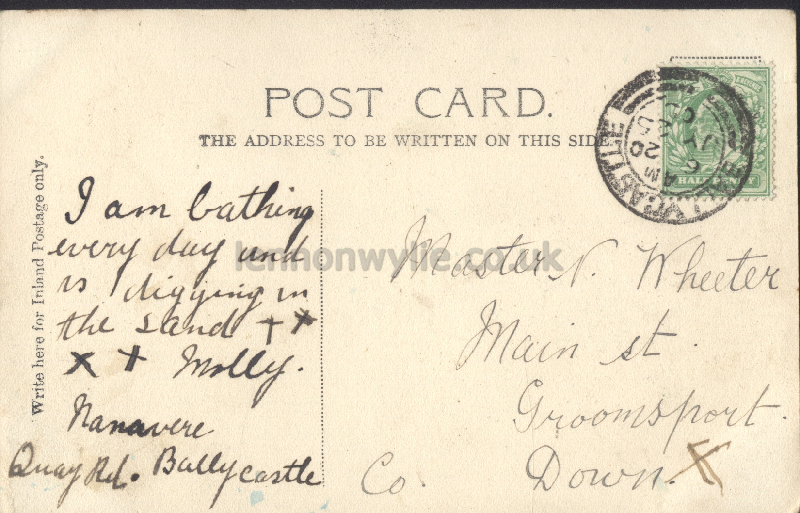 POST CARD.
THE ADDRESS TO BE WRITTEN ON THIS SIDE
Write here for Inland Postage only.
I am bathing
every day and
is digging in
the sand ++
x + Molly.
Nanavere
Quay Rd. Ballycastle
Master N. Wheeler
Main st.
Groomsport.
Co. Down. X
BALLYCASTLE
6 AM
JY 20
05
lennonwylie.co.uk